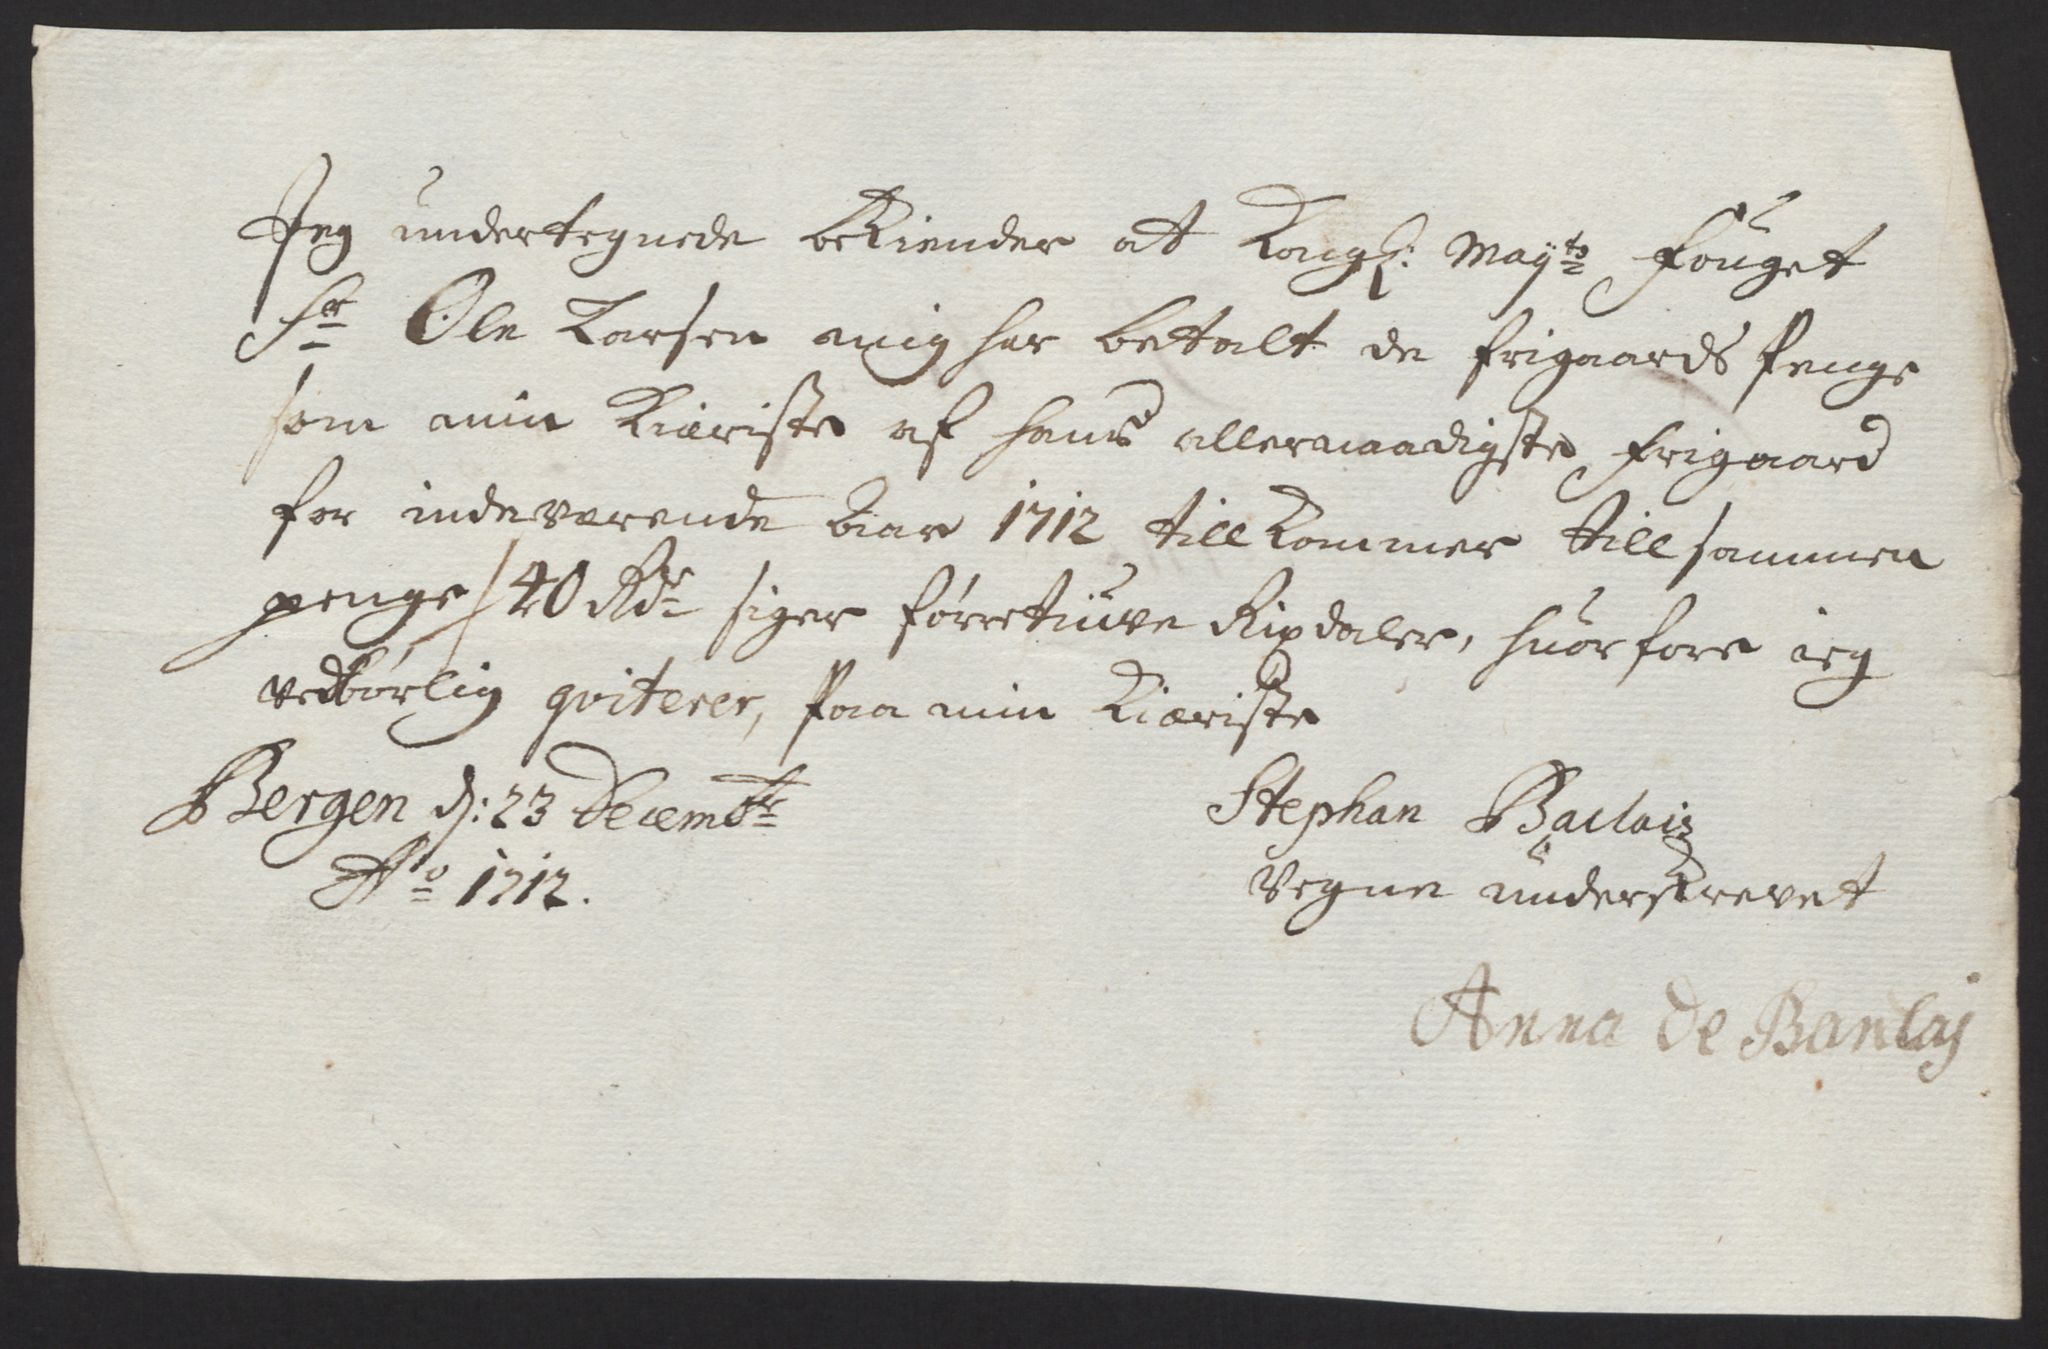 Jeg undertegnede bekiender at Kongl: Mayts Fouget
Sr Ole Larsen mig har betalt de frigaards Penge
som min Kieriste af hans allernaadigste frigaard
for indeværende Aar 1712 tillkommer tillsammen
penge 40 Rdr siger førretiuve Rixdaler, huorfore ieg
vedbørlig qviterer, Paa min Kiæriste
Bergen d: 23 Decembr
Ao 1712.
Stephan Baclaiz
Vegne underskrevet
Anna de Barclaj